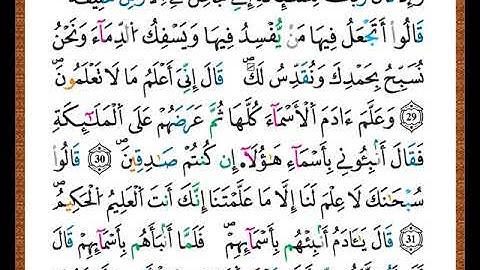 قَالُوٓاْ أَتَجْعَلُ فِيهَا مَنْ يُّفْسِدُ فِيهَا وَيَسْفِكُ اُلدِّمَآءَ وَنَحْنُ
نُسَبِّحُ بِحَمْدِكَ وَنُقَدِّسُ لَكَۖ قَالَ إِنِّيَ أَعْلَمُ مَا لَا تَعْلَمُونَۖ
(29) وَعَلَّمَ ءَادَمَ اَلْأَسْمَآءَ كُلَّهَا ثُمَّ عَرَضَهُمْ عَلَى اَلْمَلَٰٓئِكَةِ
فَقَالَ أَنۢبِـُٔونِي بِأَسْمَآءِ هَٰٓؤُلَآءِ إِن كُنتُمْ صَٰدِقِينَۖ (30) قَالُواْ
سُبْحَٰنَكَ لَا عِلْمَ لَنَآ إِلَّا مَا عَلَّمْتَنَآ إِنَّكَ أَنتَ اَلْعَلِيمُ اُلْحَكِيمُۖ
(31) قَالَ يَٰٓـَٔادَمُ أَنۢبِئْهُم بِأَسْمَآئِهِمْۖ فَلَمَّآ أَنۢبَأَهُم بِأَسْمَآئِهِمْ قَالَ